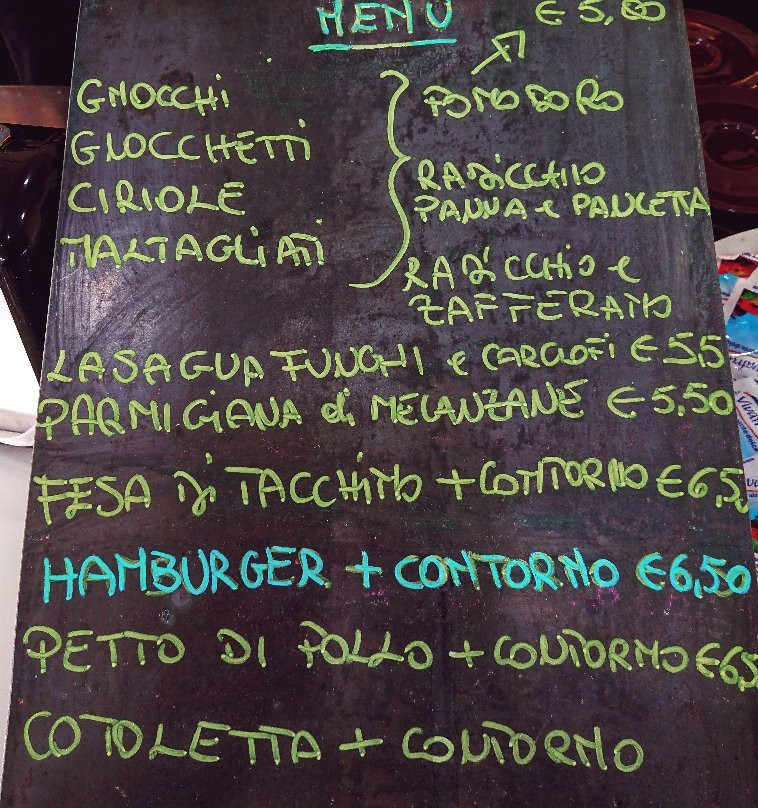 MENU € 5,80
GNOCCHI
GNOCCHETTI
CIRIOLE
MALTAGLIATI
POMODORO
RADICCHIO
PANNA e PANCETTA
RADICCHIO e
ZAFFERANO
LASAGNA FUNGHI e CARCIOFI € 5,5
PARMIGIANA di MELANZANE € 5,50
FESA DI TACCHINO + CONTORNO € 6,5
HAMBURGER + CONTORNO € 6,50
PETTO DI POLLO + CONTORNO € 6,5
COTOLETTA + CONTORNO